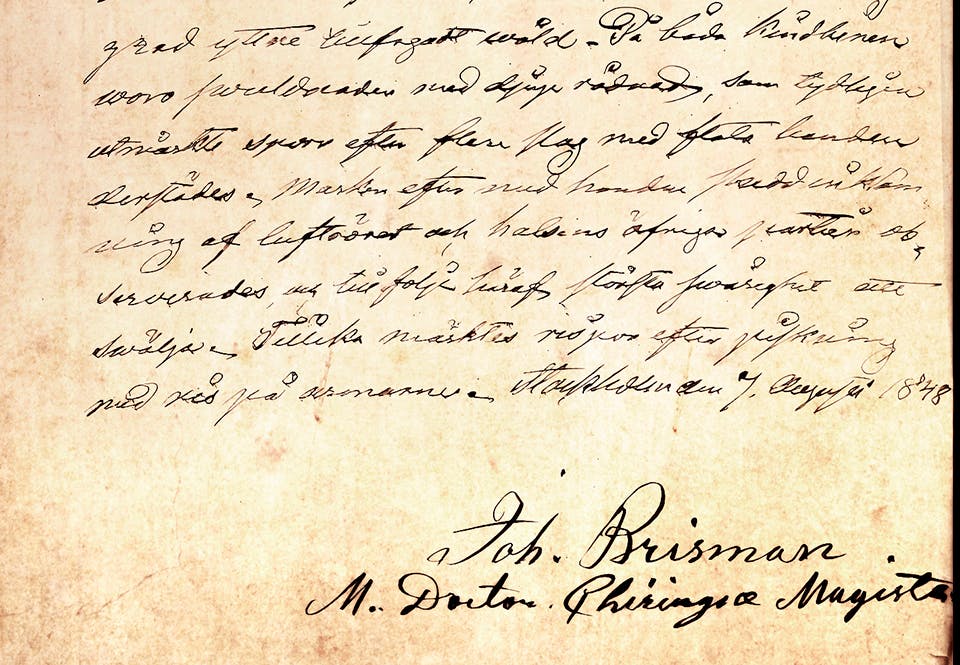 grad yttre tillfogadt wåld. På båda Kindbenen
woro swullnader med djup rådnad, som tydligen
utmärkte spår efter flere slag med flata handen
derstädes. Märken efter med handen skedd inkläm-
ning af luftröret och halsens öfriga partier ob-
serverades, och till följe häraf största swårighet att
swälja. Tillika märktes rispor efter piskning
med ris på armarne. Stockholm den 7. Augusti 1848
Joh. Brisman.
M. Doctor. Chirurgiæ Magister